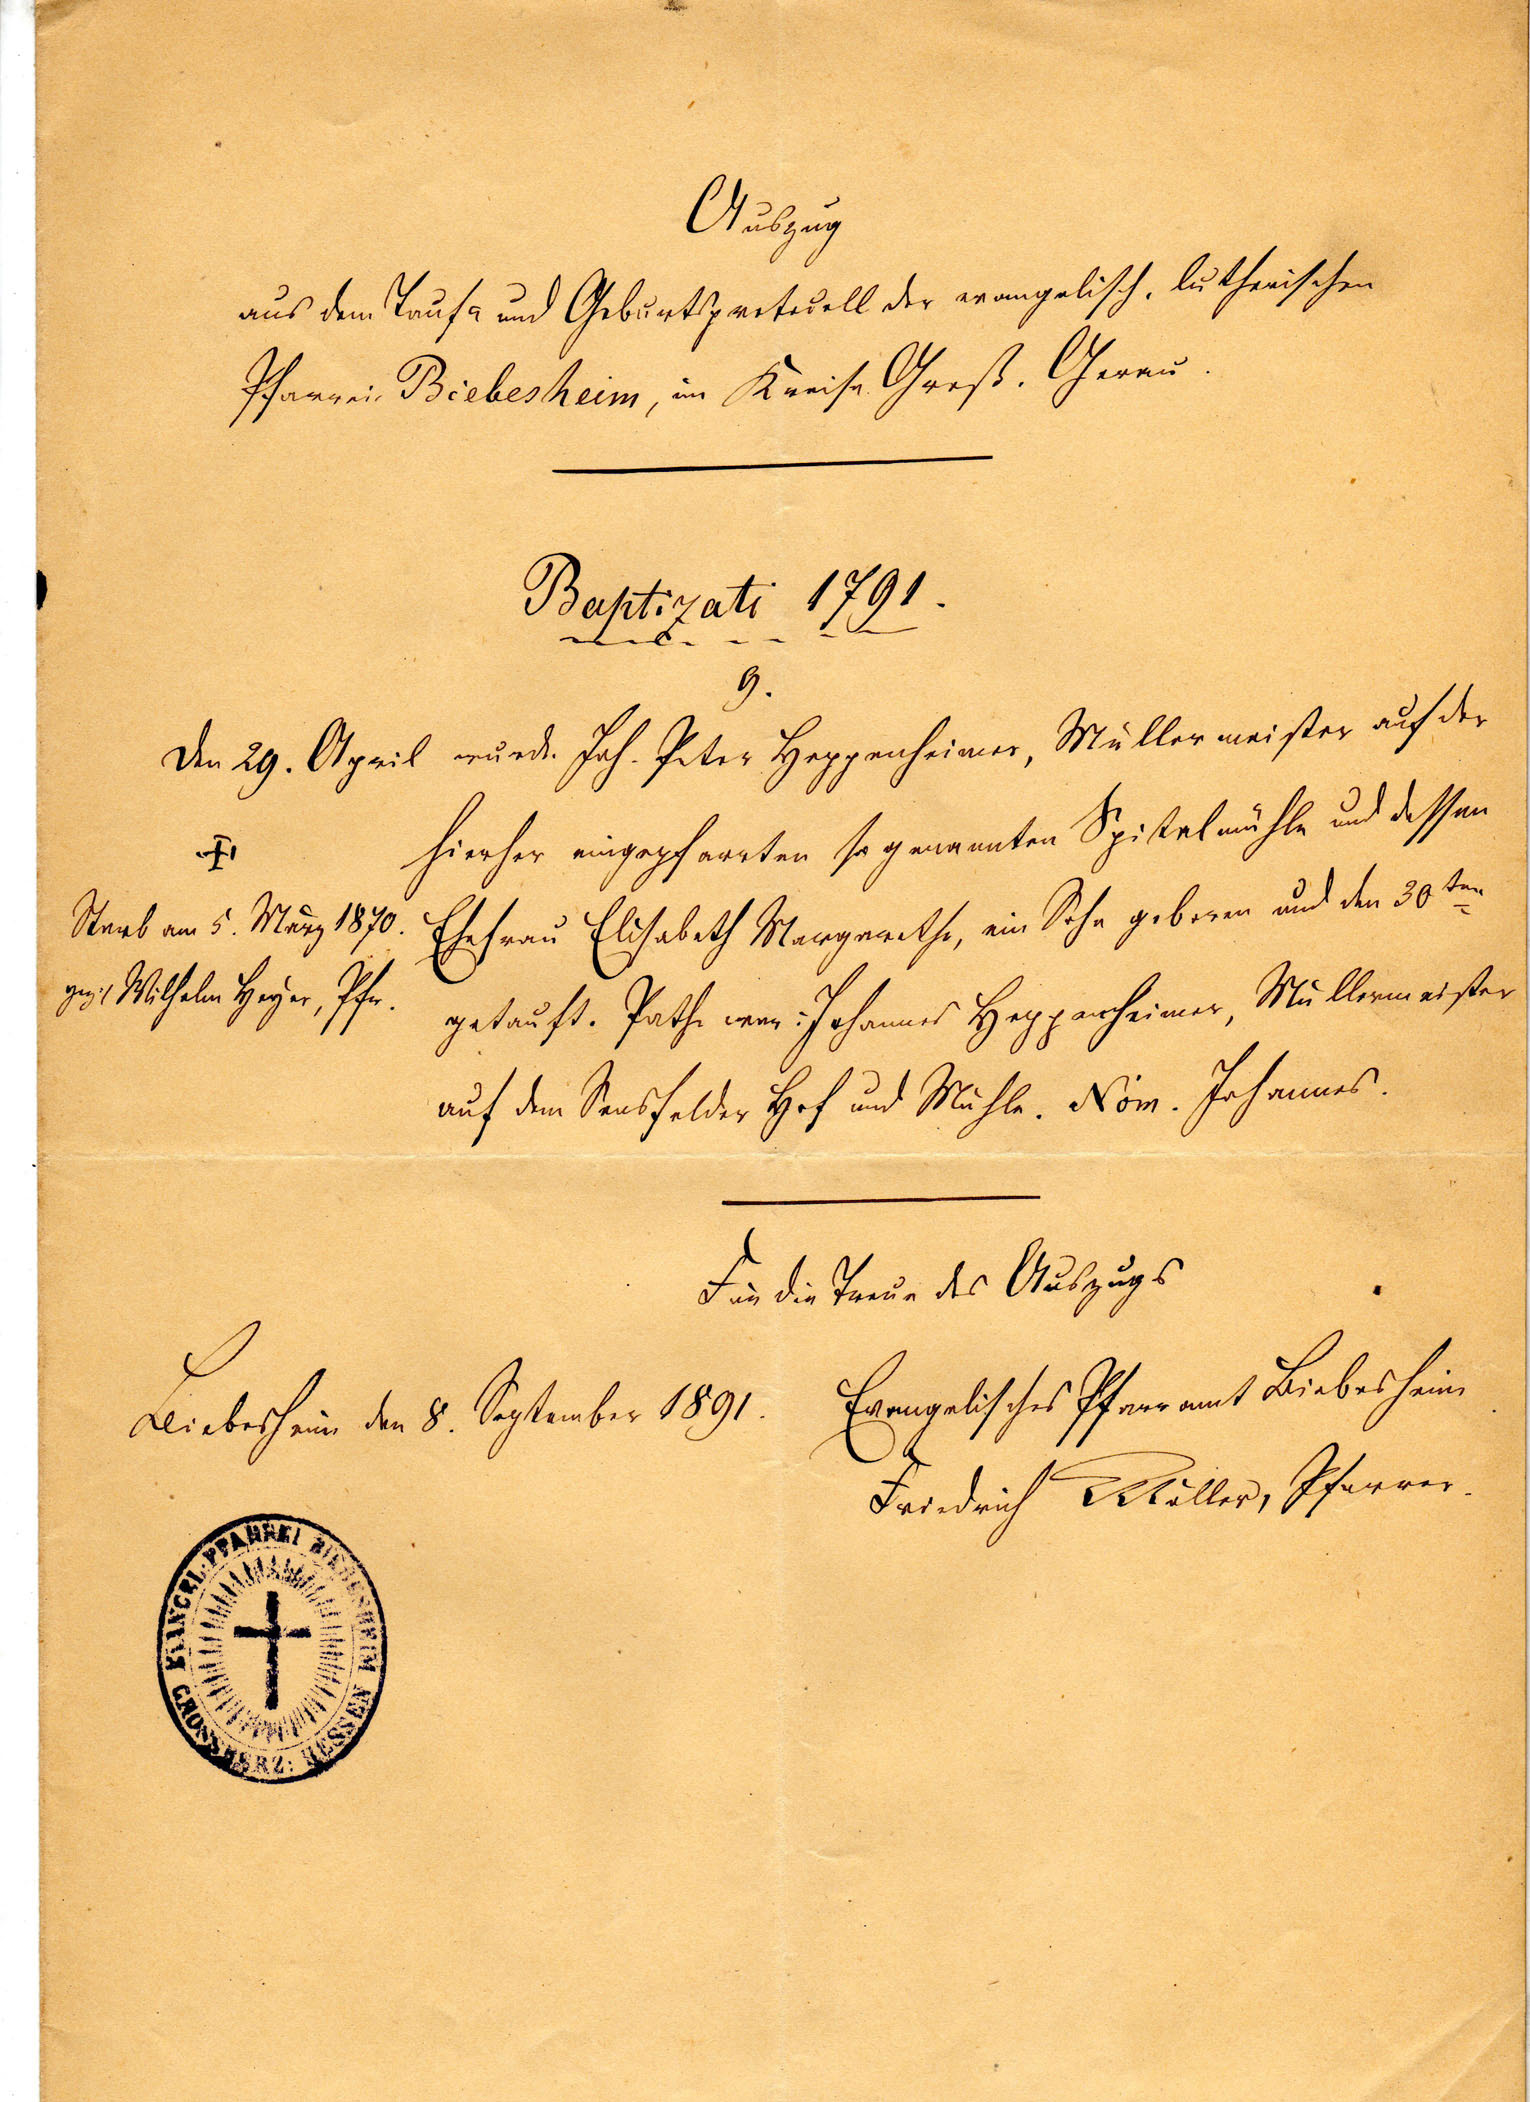 Auszug
aus dem Tauf- und Geburtsprotocoll der evangelisch-lutherischen
Pfarrei Biebesheim, im Kreise Groß-Gerau.
Baptizati 1791.
9.
Den 29. April wurde Joh. Peter Heppenheimer, Müllermeister auf der
hierher eingepfarrten so genannten Spitalmühle und dessen
Ehefrau Elisabeth Margarethe, ein Sohn geboren und den 30ten
getauft. Pathe war: Johannes Heppenheimer, Müllermeister
auf dem Sensfelder Hof und Mühle. Nom. Johannes.
Starb am 5. März 1870.
gez. Wilhelm Heyer, Pfr.
Für die Treue des Auszugs
Biebesheim den 8. September 1891.
Evangelisches Pfarramt Biebesheim
Friedrich Müller, Pfarrer.
EVANGEL: PFARREI BIEBESHEIM
GROSSHERZ: HESSEN